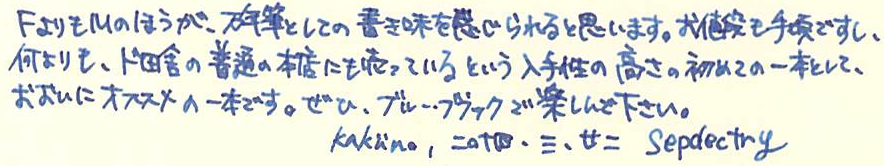 FよりもMのほうが、万年筆としての書き味を感じられると思います。お値段も手頃ですし、
何よりも、ド田舎の普通の本店にも売っているという入手性の高さの初めての一本として、
おおいにオススメの一本です。ぜひ、ブルーブラックで楽しんで下さい。
kaküno, 二〇十四・三、廿二 Sepdectry